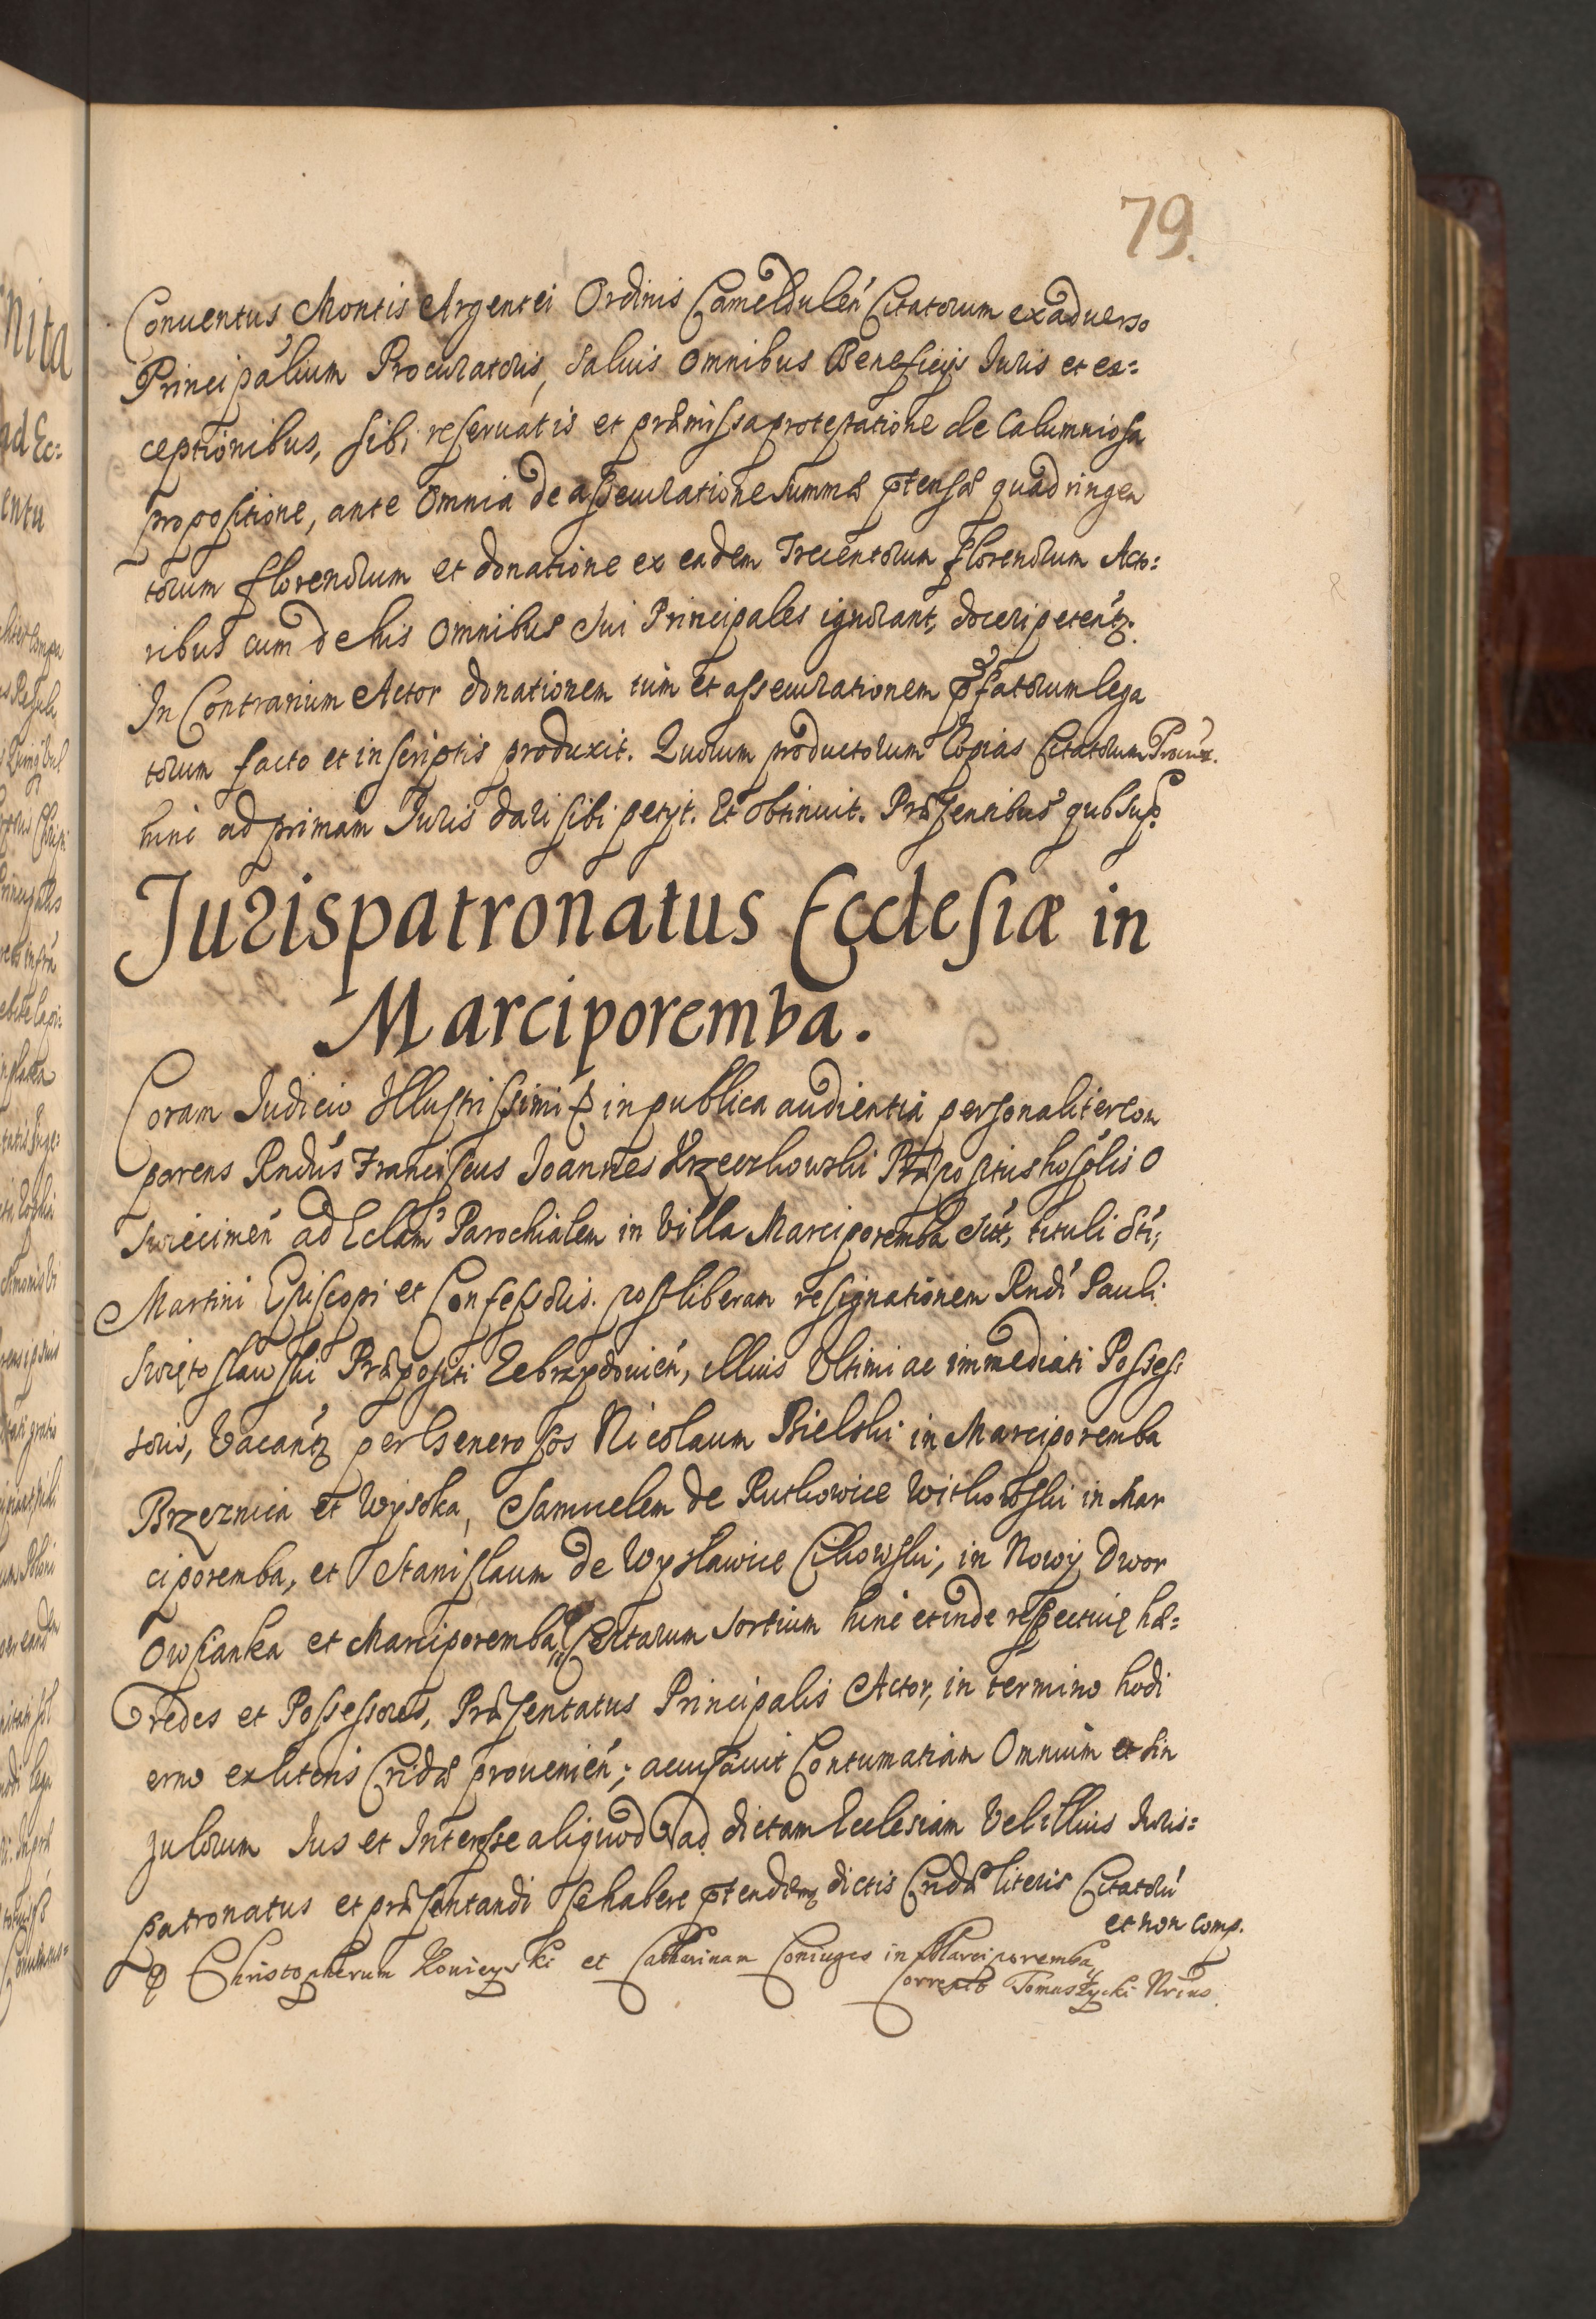 79.
Conuentus Montis Argentei Ordinis Cameldulen̄ Citatorum exaduerso
Principalium Procuratoris, Saluis omnibus Beneficijs Iuris et ex=
ceptionibus, sibi reseruatis et præmissa protestatione de Calumniosa
propositione, ante Omnia de assecuratione Summæ ptensæ quadringen
torum florenorum et donatione ex eadem Trecentorum florenorum Acto=
ribus cum de his omnibus Sui Principales ignorant, doceri petentq.
In Contrarium Actor donationem tum et assecurationem pfatorum lega
torum facto et in scriptis produxit. Quorum productorum Copias Citatorum Procur.
hinc ad primam Iuris dari sibi petijt. Et obtinuit. Præsentibus qub Sup.
Jurispatronatus Ecclesiæ in
Marciporemba.
Coram Iudicio Illustrissimi & in publica audientia personaliter com
parens Rndus Franciscus Ioannes Krzeczkowski Præpositus hosplis O
Swiecimen̄ ad Eclam Parochialem in Villa Marciporemba Sit, tituli Sti,
Martini Episcopi et Confessoris. post liberam resignationem Rndi Pauli
Swiętoslawski Præpositi Zebrzydouien̄, illius Ultimi ac immediati Posses:
soris, Vacantq per Generosos Nicolaum Bielski in Marciporemba
Brzeznica et Wysoka, Samuelem de Rutkowice Witkowski in Mar
ciporemba, et Stanislaum de Wyslawice Cikowski, in Nowy Dwor
Owsianka et Marciporemba, Certarum Sortium hinc et inde respectiuę hæ=
redes et Possessores, Præsentatus Principalis Actor, in termino hodi
erno ex literis Cridæ prouenien̄; accusauit Contumatiam Omnium et sin
gulorum Ius et Interesse aliquod ad dictam Ecclesiam Vel illius Iuris=
patronatus et præsentandi se habere ptendenq dictis Cridæ literis Citatorū
et non comp.
Christopherum Konieyski et Catharinam Coniuges in Marciporemba
Correcto Tomaszycki Nrius